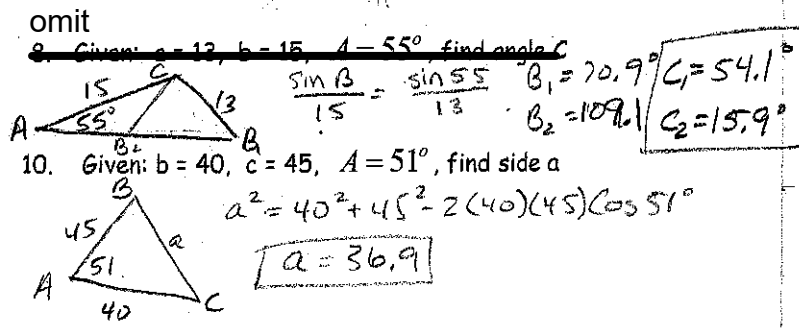 omit
8. Given: a = 13, b = 15, A = 55°, find angle C
C
15
13
A
55°
B₂
B₁
sin B / 15 = sin 55 / 13
B₁ = 70.9°
B₂ = 109.1
C₁ = 54.1°
C₂ = 15.9°
10. Given: b = 40, c = 45, A = 51°, find side a
B
45
a
51
A
40
C
a² = 40² + 45² - 2(40)(45)Cos 51°
a = 36.9